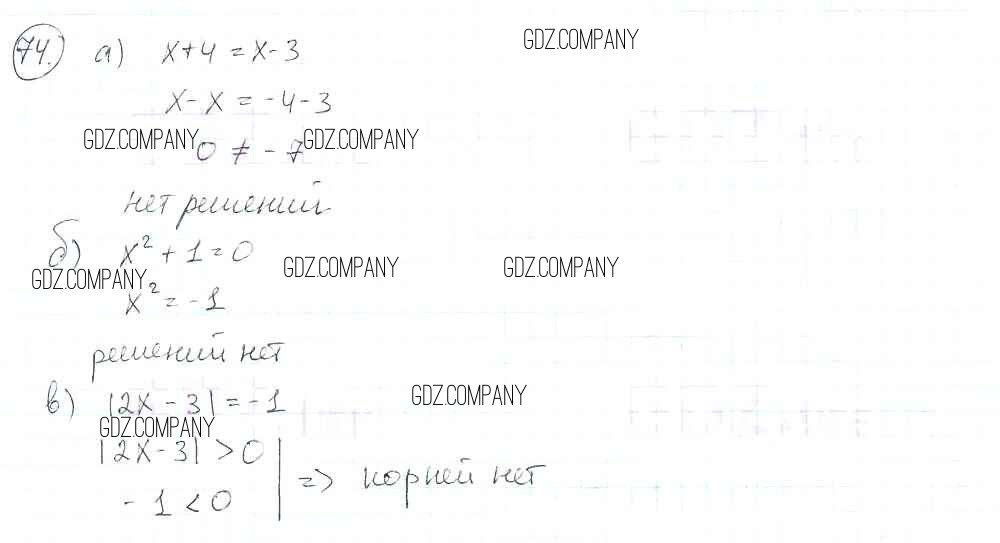 74. а) x+4 = x-3
GDZ.COMPANY
x - x = -4 -3
GDZ.COMPANY 0 ≠ -7 GDZ.COMPANY
нет решений
б) x² + 1 = 0
GDZ.COMPANY GDZ.COMPANY GDZ.COMPANY
x² = -1
решений нет
в) |2x - 3| = -1
GDZ.COMPANY
GDZ.COMPANY
|2x - 3| > 0
-1 < 0 | => корней нет